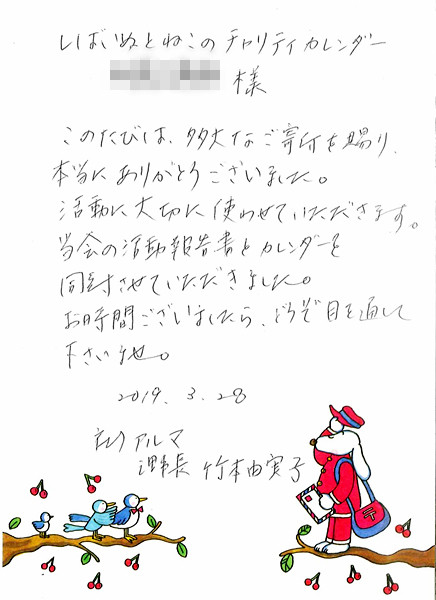 しばいぬとねこのチャリティカレンダー
様
このたびは、多大なご寄付を賜り、
本当にありがとうございました。
活動に大切に使わせていただきます。
当会の活動報告書とカレンダーを
同封させていただきました。
お時間ございましたら、どうぞ目を通して
下さいませ。
2019.3.28
アルマ
竹本由実子